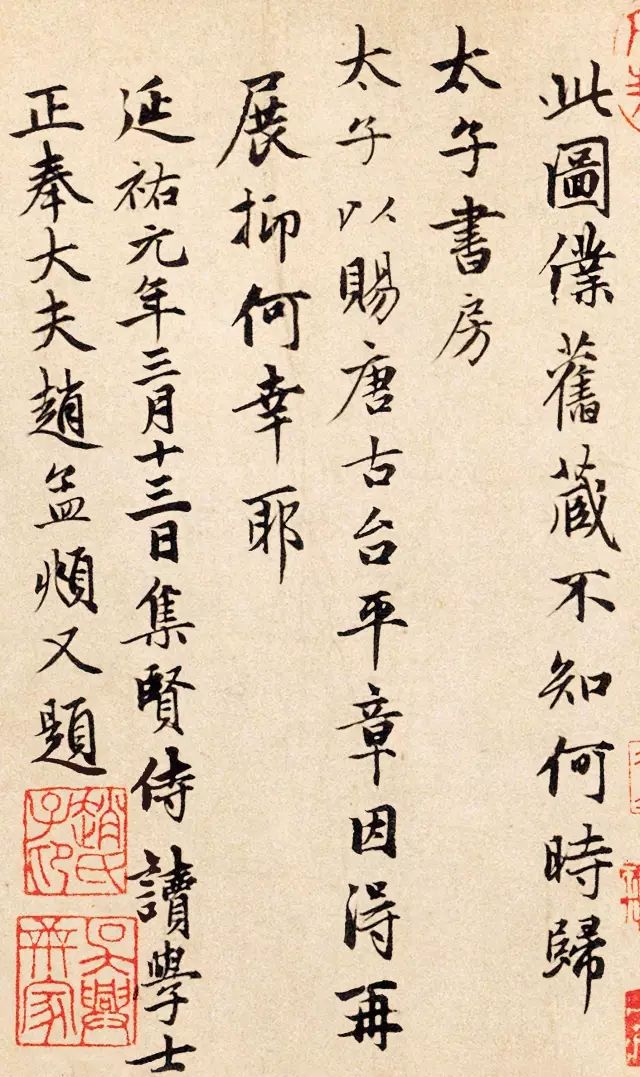 此圖僕舊藏不知何時歸
太子書房
太子以賜唐古台平章因得再
展抑何幸耶
延祐元年三月十三日集賢侍讀學士
正奉大夫趙孟頫又題
趙氏子印